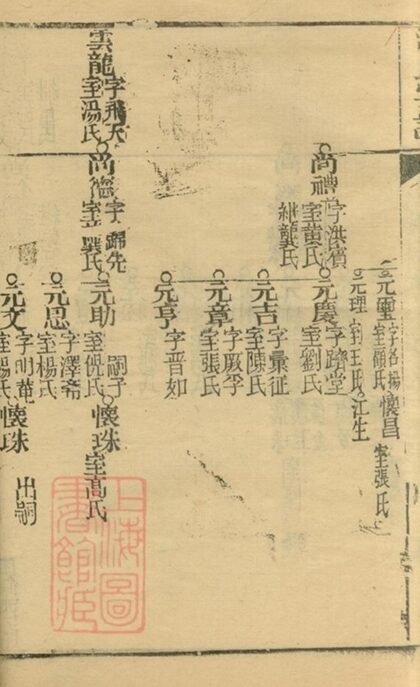 元璽 字名揚 室顧氏
懷昌 室張氏
元理 室王氏
江生
尚禮 字洪賓 室黄氏 继龔氏
元慶 字躋堂 室劉氏
元吉 字彙征 室陳氏
元章 字厥孚 室張氏
元亨 字晋如
雲龍 字飛天 室湯氏
尚德 字歸先 室龔氏
元助 室倪氏 嗣子
懷珠 室高氏
元思 字澤斋 室楊氏
元文 字明華 室楊氏
懷珠 出嗣
上海圖書館藏